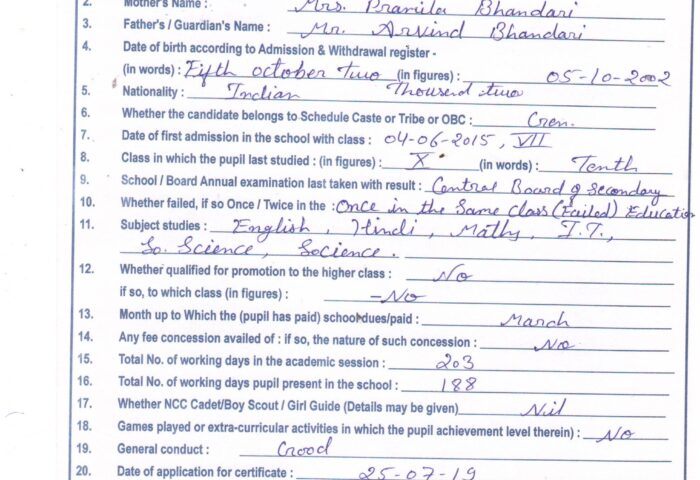 2. Mother's Name : Mrs. Pramila Bhandari
3. Father's / Guardian's Name : Mr. Arvind Bhandari
4. Date of birth according to Admission & Withdrawal register -
(in words) : Fifth october two (in figures) : 05-10-2002
5. Nationality : Indian Thousend two
6. Whether the candidate belongs to Schedule Caste or Tribe or OBC : Gen.
7. Date of first admission in the school with class : 04-06-2015, VII
8. Class in which the pupil last studied : (in figures) : X (in words) : Tenth
9. School / Board Annual examination last taken with result : Central Board of Secondary
10. Whether failed, if so Once / Twice in the : Once in the Same class (Failed) Education
11. Subject studies : English, Hindi, Maths, I.T.,
So. Science, Socience.
12. Whether qualified for promotion to the higher class : No
if so, to which class (in figures) : -No
13. Month up to Which the (pupil has paid) school dues/paid : March
14. Any fee concession availed of : if so, the nature of such concession : No
15. Total No. of working days in the academic session : 203
16. Total No. of working days pupil present in the school : 188
17. Whether NCC Cadet/Boy Scout / Girl Guide (Details may be given) Nil
18. Games played or extra-curricular activities in which the pupil achievement level therein) : No
19. General conduct : Good
20. Date of application for certificate : 25-07-19